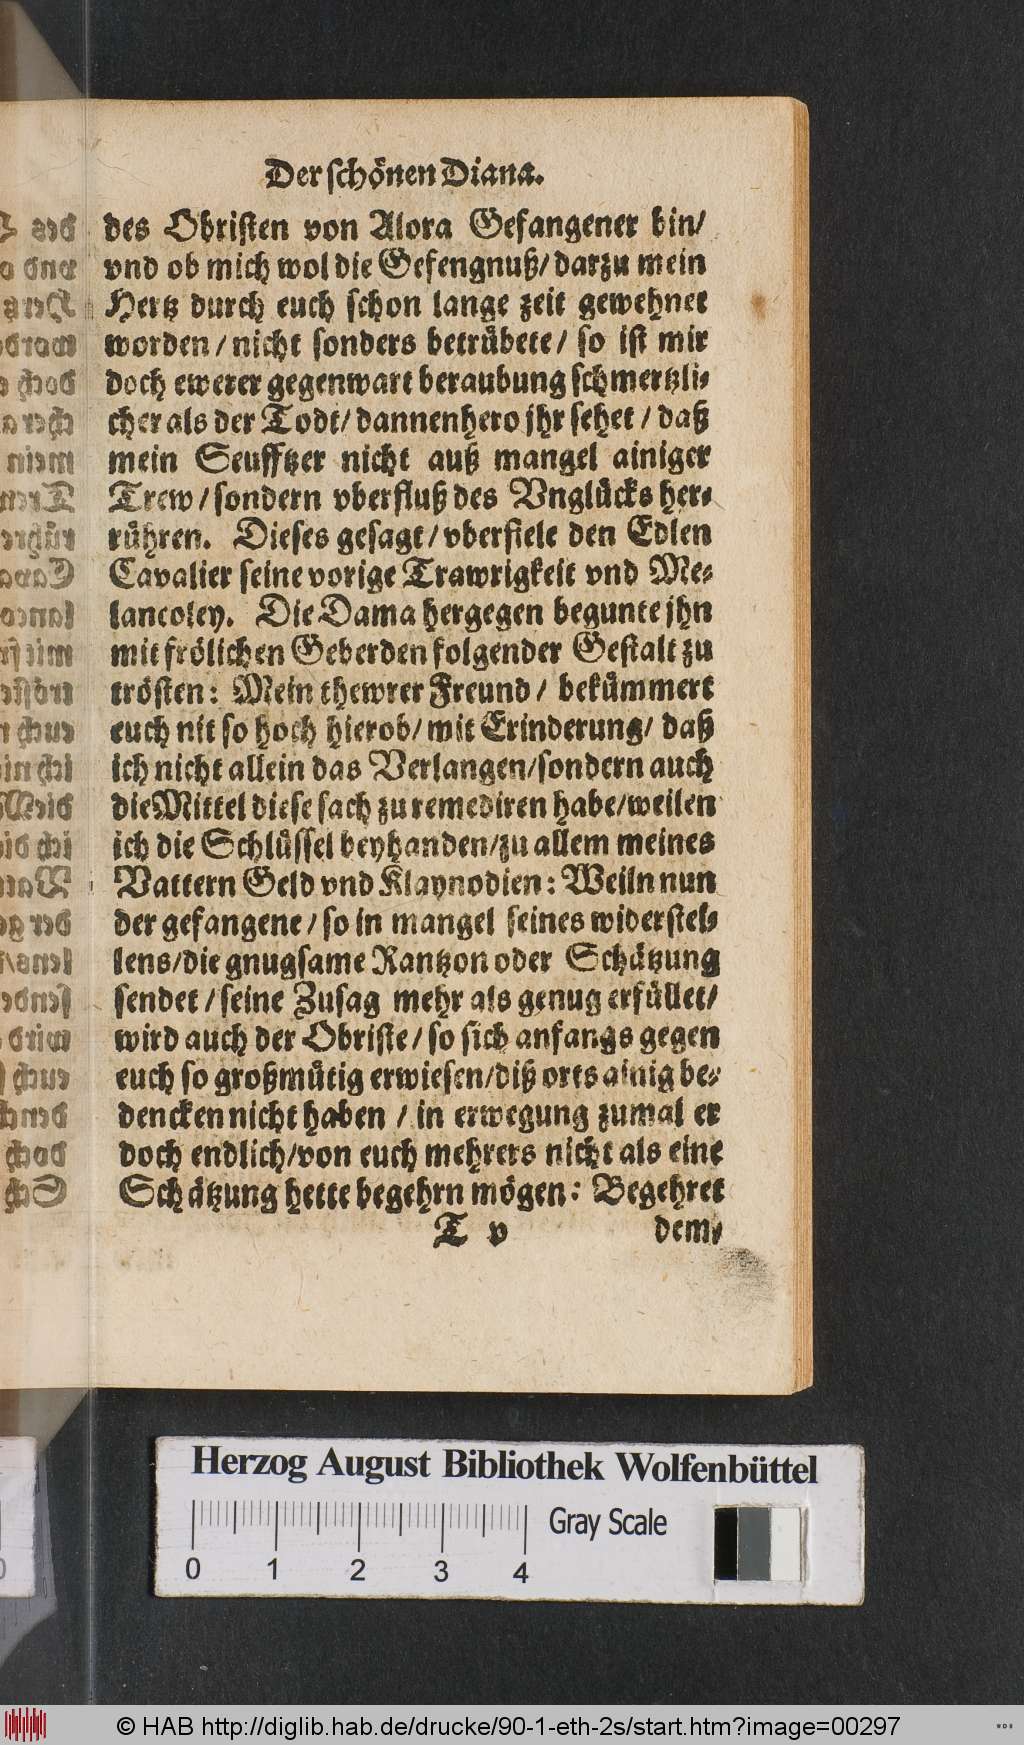 Der schönen Diana.
des Obristen von Alora Gefangener bin/
vnd ob mich wol die Gefengnuß/ darzu mein
Hertz durch euch schon lange zeit gewehnet
worden / nicht sonders betrübete / so ist mir
doch ewerer gegenwart beraubung schmertzli-
cher als der Todt/ dannenhero jhr sehet / daß
mein Seufftzer nicht auß mangel ainiger
Trew / sondern vberfluß des Vnglücks her-
rühren. Dieses gesagt / vberfiele den Edlen
Cavalier seine vorige Trawrigkeit vnd Me-
lancoley. Die Dama hergegen begunte jhn
mit frölichen Geberden folgender Gestalt zu
trösten: Mein thewrer Freund / bekümmert
euch nit so hoch hierob/ mit Erinderung/ daß
ich nicht allein das Verlangen/sondern auch
die Mittel diese sach zu remediren habe/weilen
ich die Schlüssel beyhanden/zu allem meines
Vattern Geld vnd Klaynodien: Weiln nun
der gefangene / so in mangel seines widerstel-
lens/die gnugsame Rantzon oder Schätzung
sendet / seine Zusag mehr als genug erfüllet/
wird auch der Obriste / so sich anfangs gegen
euch so großmütig erwiesen/diß orts ainig be-
dencken nicht haben / in erwegung zumal er
doch endlich/von euch mehrers nicht als eine
Schätzung hette begehrn mögen: Begehret
T v dem-
Herzog August Bibliothek Wolfenbüttel
Gray Scale
0 1 2 3 4
© HAB http://diglib.hab.de/drucke/90-1-eth-2s/start.htm?image=00297